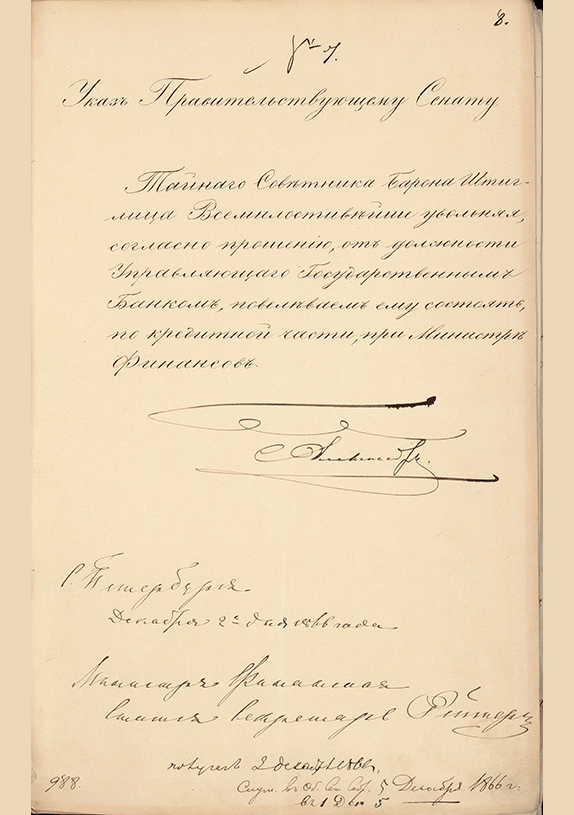 8.
Указъ Правительствующему Сенату
Тайнаго Совѣтника Барона Штиг-
лица Всемилостивѣйше увольняя,
согласно прошенію, отъ должности
Управляющаго Государственнымъ
Банкомъ, повелѣваемъ ему состоять,
по кредитной части, при Министрѣ
Финансовъ.
Александръ.
С. Петербургъ
Декабря 2го дня 1866 года
Министръ Финансовъ
Статсъ Секретарь Рейтернъ
получено 2 декабря 1866.
Слуш. въ Об. Сен. Соб. 5 Декабря 1866 г.
988.